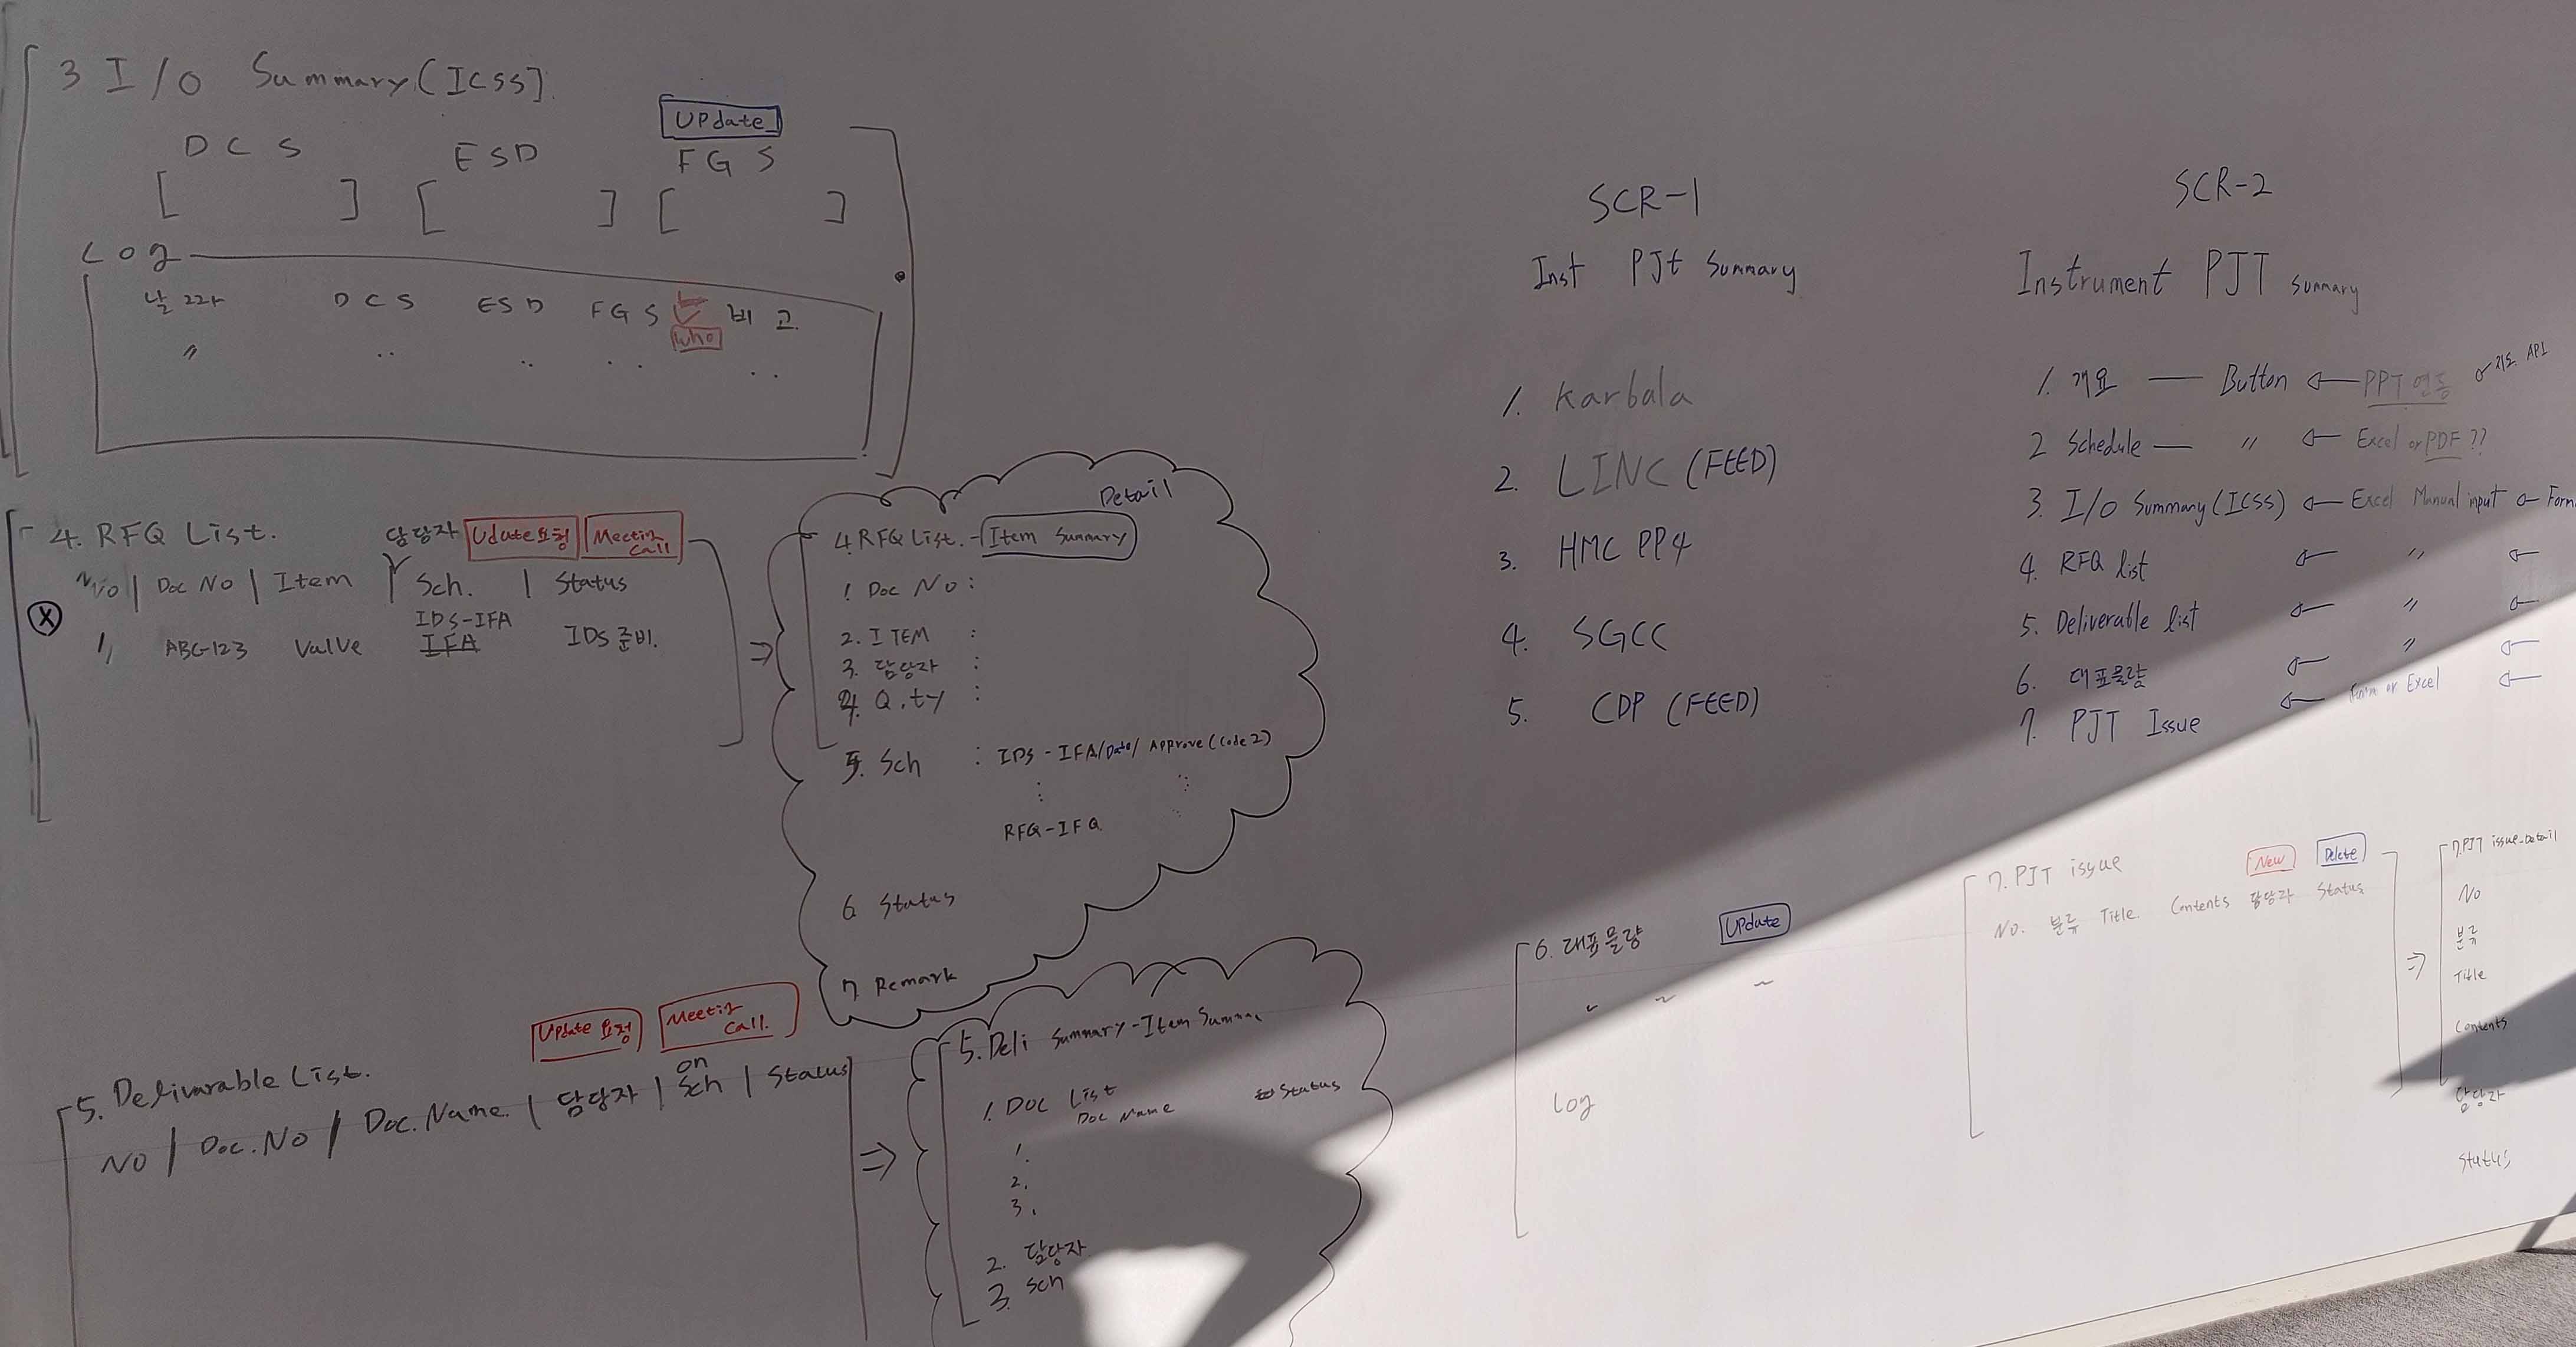 3 I/O Summary(ICSS]
UPdate
DCS ESD FGS
[ ] [ ] [ ]
Log
날짜 DCS ESD FGS 비고
who
〃 .. .. .. ..
4. RFQ List. 담당자 Udate요청 Meeting Call
No | Doc No | Item | Sch. | Status
IDS-IFA
1, ABC-123 Valve IFA IDS 준비.
X
⇒
Detail
4. RFQ List. - Item Summary
1. Doc No :
2. ITEM :
3. 담당자 :
4. Q.ty :
5. Sch : IDS - IFA/Date/ Approve (Code 2)
RFQ-IFQ
6. Status
7. Remark
Update 요청 Meeting Call.
5. Delivarable List.
No | Doc.No | Doc.Name. | 담당자 | Sch | Status
on
⇒
5. Deli Summary-Item Summa
1. Doc List
Doc Name Status
1.
2.
3.
2. 담당자
3. Sch
SCR-1
Inst PJt Summary
1. Karbala
2. LINC (FEED)
3. HMC PP4
4. SGCC
5. CDP (FEED)
SCR-2
Instrument PJT Summary
1. 개요 — Button ← PPT 연동 ← 지도 API
2 Schedule — 〃 ← Excel or PDF ??
3. I/O Summary(ICSS) ← Excel Manual input ← Form
4. RFQ list ← 〃 ←
5. Deliverable list ← 〃 ←
6. 대표물량 ← 〃 ←
7. PJT Issue ← Form or Excel ←
6. 대표물량 UPdate
~ ~ ~
Log
7. PJT issue New Delete
No. 분류 Title. Contents 담당자 Status
⇒
7.PJT issue-Detail
No
분류
Title
Contents
담당자
Status